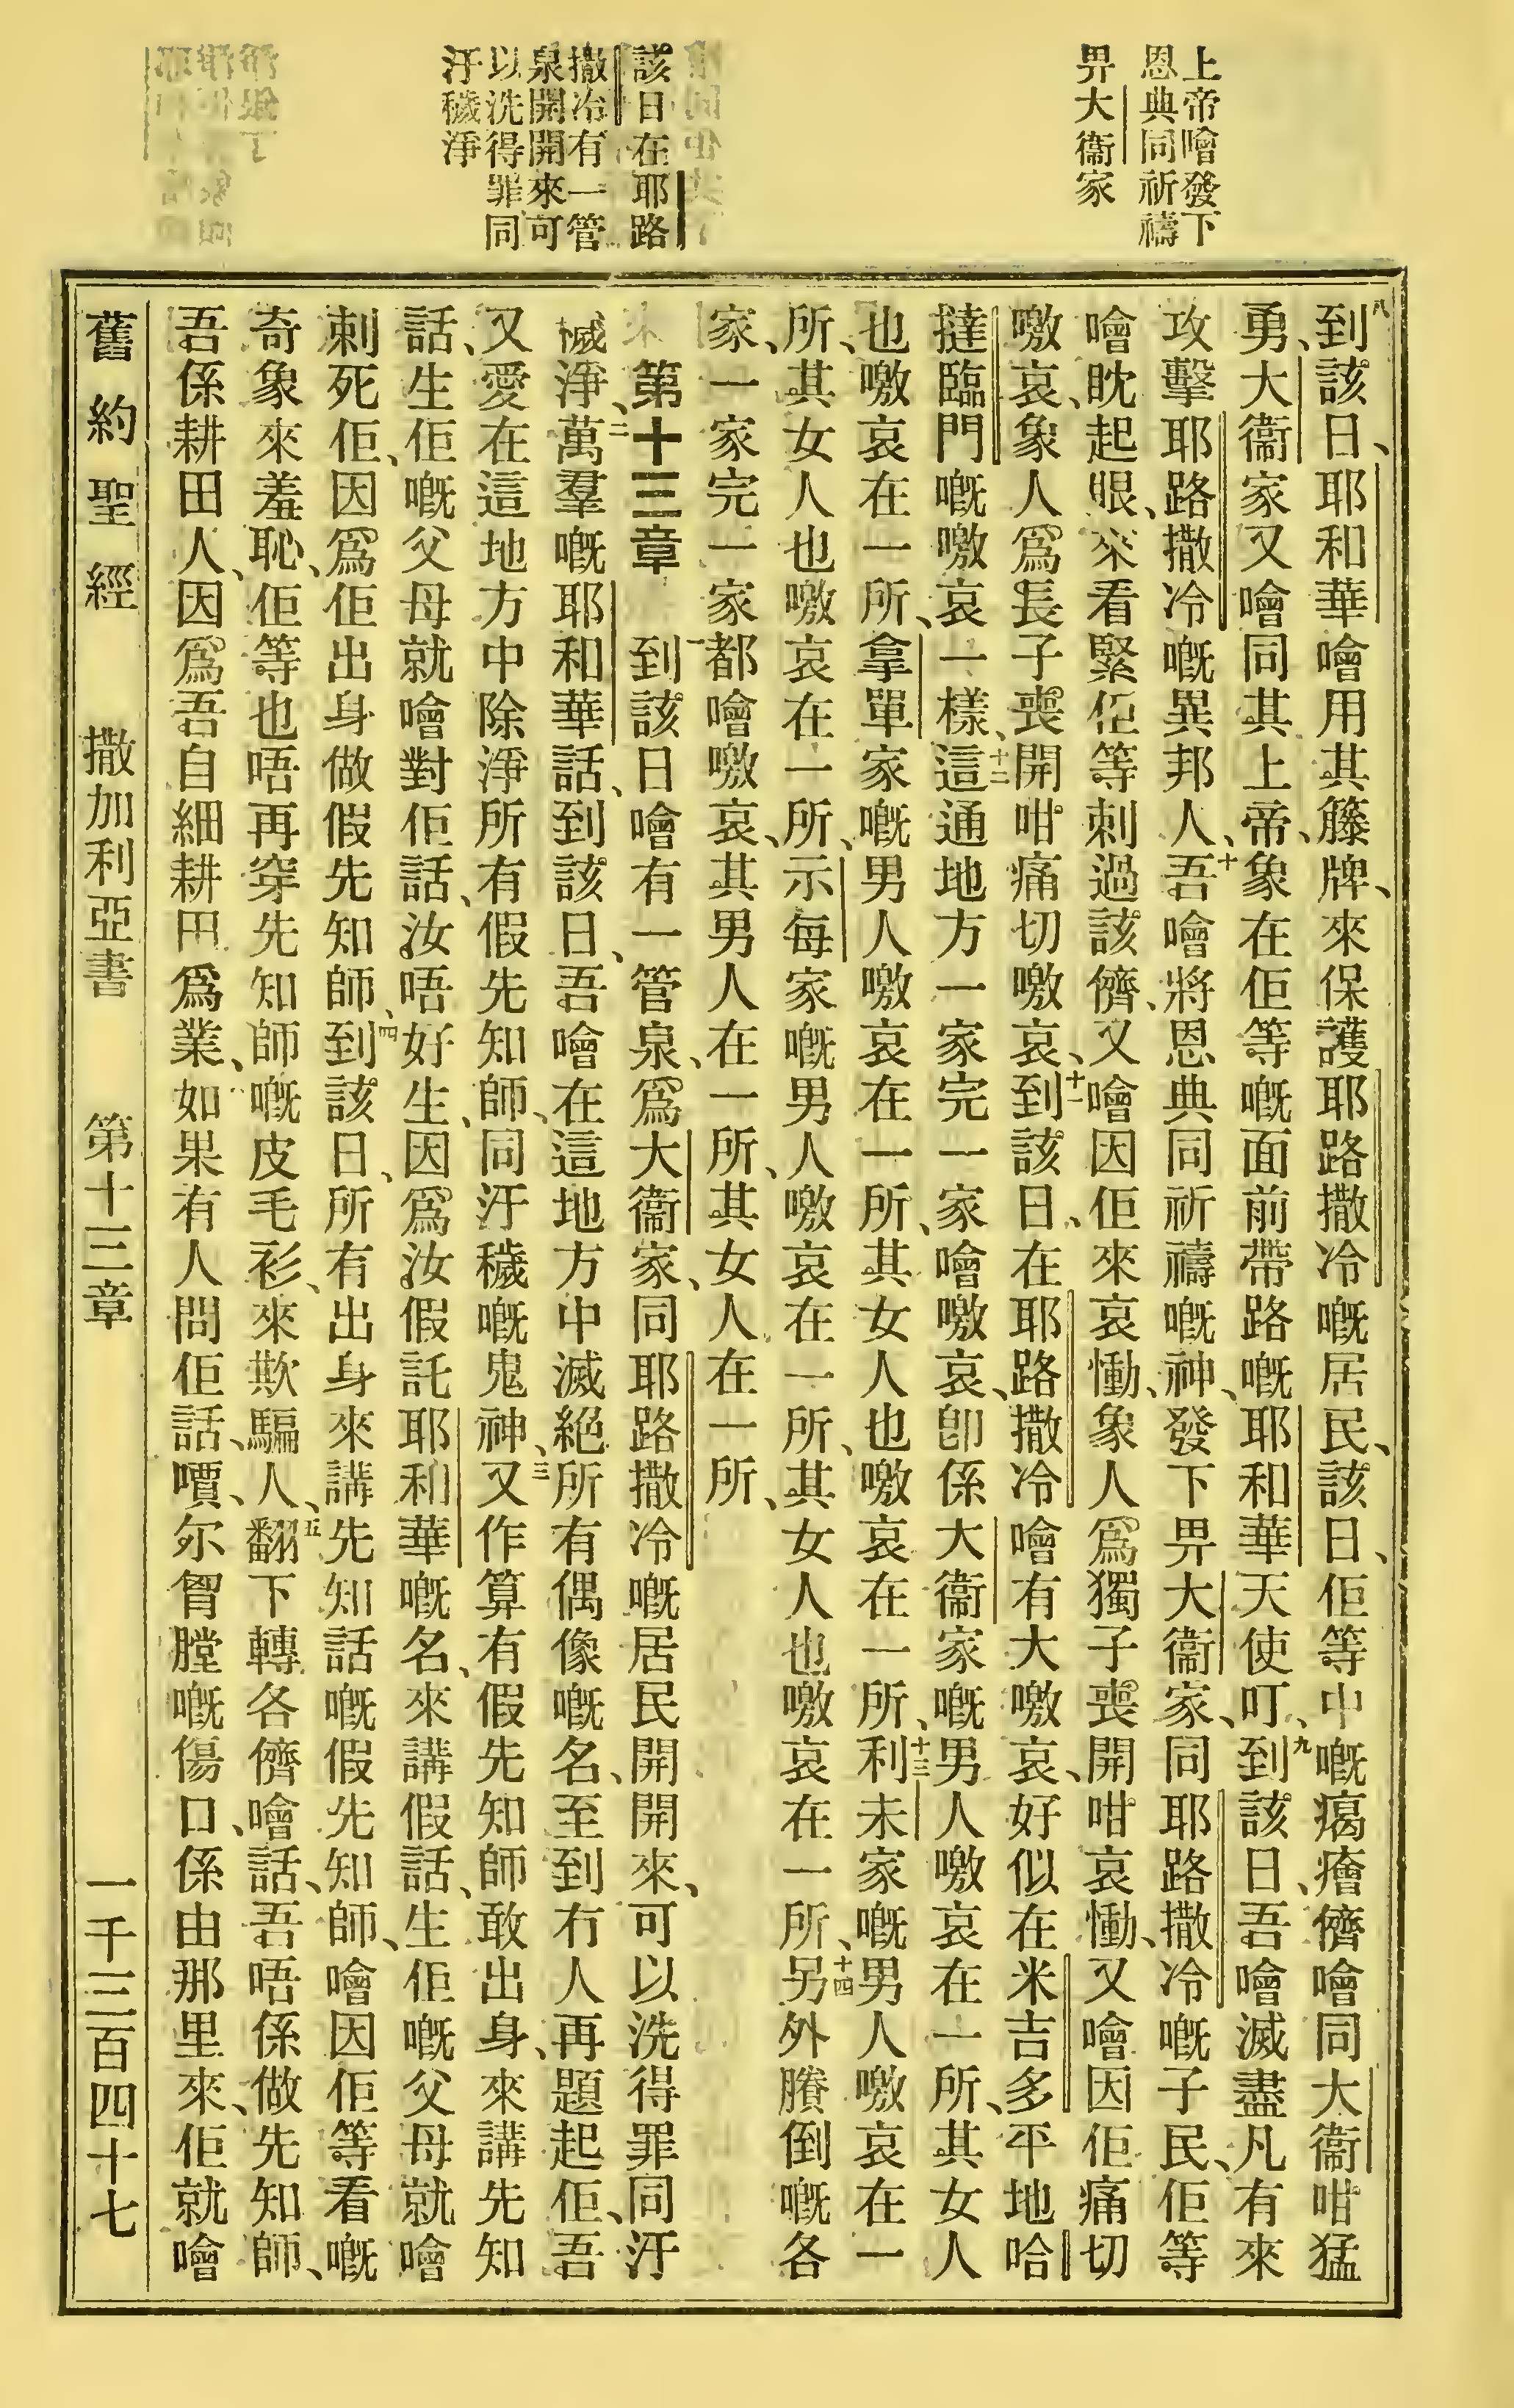 上帝噲發下
恩典同祈禱
畀大衞家
該日在耶路
撒冷有一管
泉開開來可
以洗得罪同
汙穢淨
八到該日、耶和華噲用其籐牌、來保護耶路撒冷嘅居民、該日、佢等中嘅癘癐儕噲同大衞咁猛
勇、大衞家又噲同其上帝、象在佢等嘅面前帶路嘅、耶和華天使叮、九到該日、吾噲滅盡凡有來
攻擊耶路撒冷嘅異邦人、十吾噲將恩典同祈禱嘅神、發下畀大衞家、同耶路撒冷嘅子民、佢等
噲眈起眼、來看緊佢等刺過該儕、又噲因佢來哀慟、象人爲獨子喪開咁哀慟、又噲因佢痛切
噭哀、象人爲長子喪開咁痛切噭哀、十一到該日、在耶路撒冷噲有大噭哀、好似在米吉多平地哈
撻臨門嘅噭哀一樣、十二這通地方一家完一家噲噭哀、卽係大衞家嘅男人噭哀在一所、其女人
也噭哀在一所、拿單家嘅男人噭哀在一所、其女人也噭哀在一所、十三利未家嘅男人噭哀在一
所、其女人也噭哀在一所、示每家嘅男人噭哀在一所、其女人也噭哀在一所、十四另外賸倒嘅各
家、一家完一家都噲噭哀、其男人在一所、其女人在一所、
第十三章 一到該日噲有一管泉、爲大衞家、同耶路撒冷嘅居民開開來、可以洗得罪同汙
穢淨、二萬羣嘅耶和華話、到該日、吾噲在這地方中滅絕所有偶像嘅名、至到冇人再題起佢、吾
又愛在這地方中除淨所有假先知師、同汙穢嘅鬼神、三又作算有假先知師敢出身、來講先知
話、生佢嘅父母就噲對佢話、汝唔好生、因爲汝假託耶和華嘅名、來講假話、生佢嘅父母就噲
刺死佢、因爲佢出身做假先知師、四到該日、所有出身來講先知話嘅假先知師、噲因佢等看嘅
奇象來羞恥、佢等也唔再穿先知師嘅皮毛衫、來欺騙人、五翻下轉各儕噲話、吾唔係做先知師、
吾係耕田人、因爲吾自細耕田爲業、如果有人問佢話、嘳、尔胷膛嘅傷口、係由那里來、佢就噲
舊約聖經 撒加利亞書 第十三章 一千三百四十七